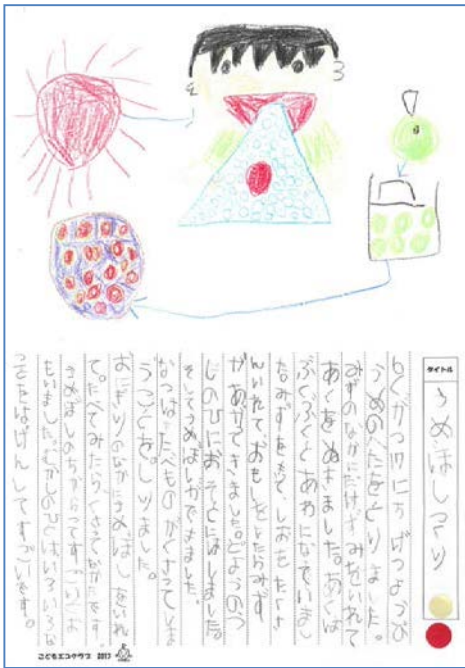 タイトル
うめほしつくり
ろくがつ17にちげつようび
うめのへたをとりました。
みずのなかに みをいれて
あくをぬきました。あくは
ぶくぶくとあわになていまし
たみずをすて、しおもたくさ
んいれておもしをしたらみず
があがてきました。どようのう
しのひにおそとにほしました。
そしてうめぼしができました。
なつはたべものがくさってしま
うことをしりました。
おにぎりのなかにうめぼしをいれ
て。たべてみたら、くさってなかたです
うめぼしのちからってすごいとお
もいました。むかしのひとはいろいろな
ことをはけんしてすごいです。
こどもエコクラブ 2013